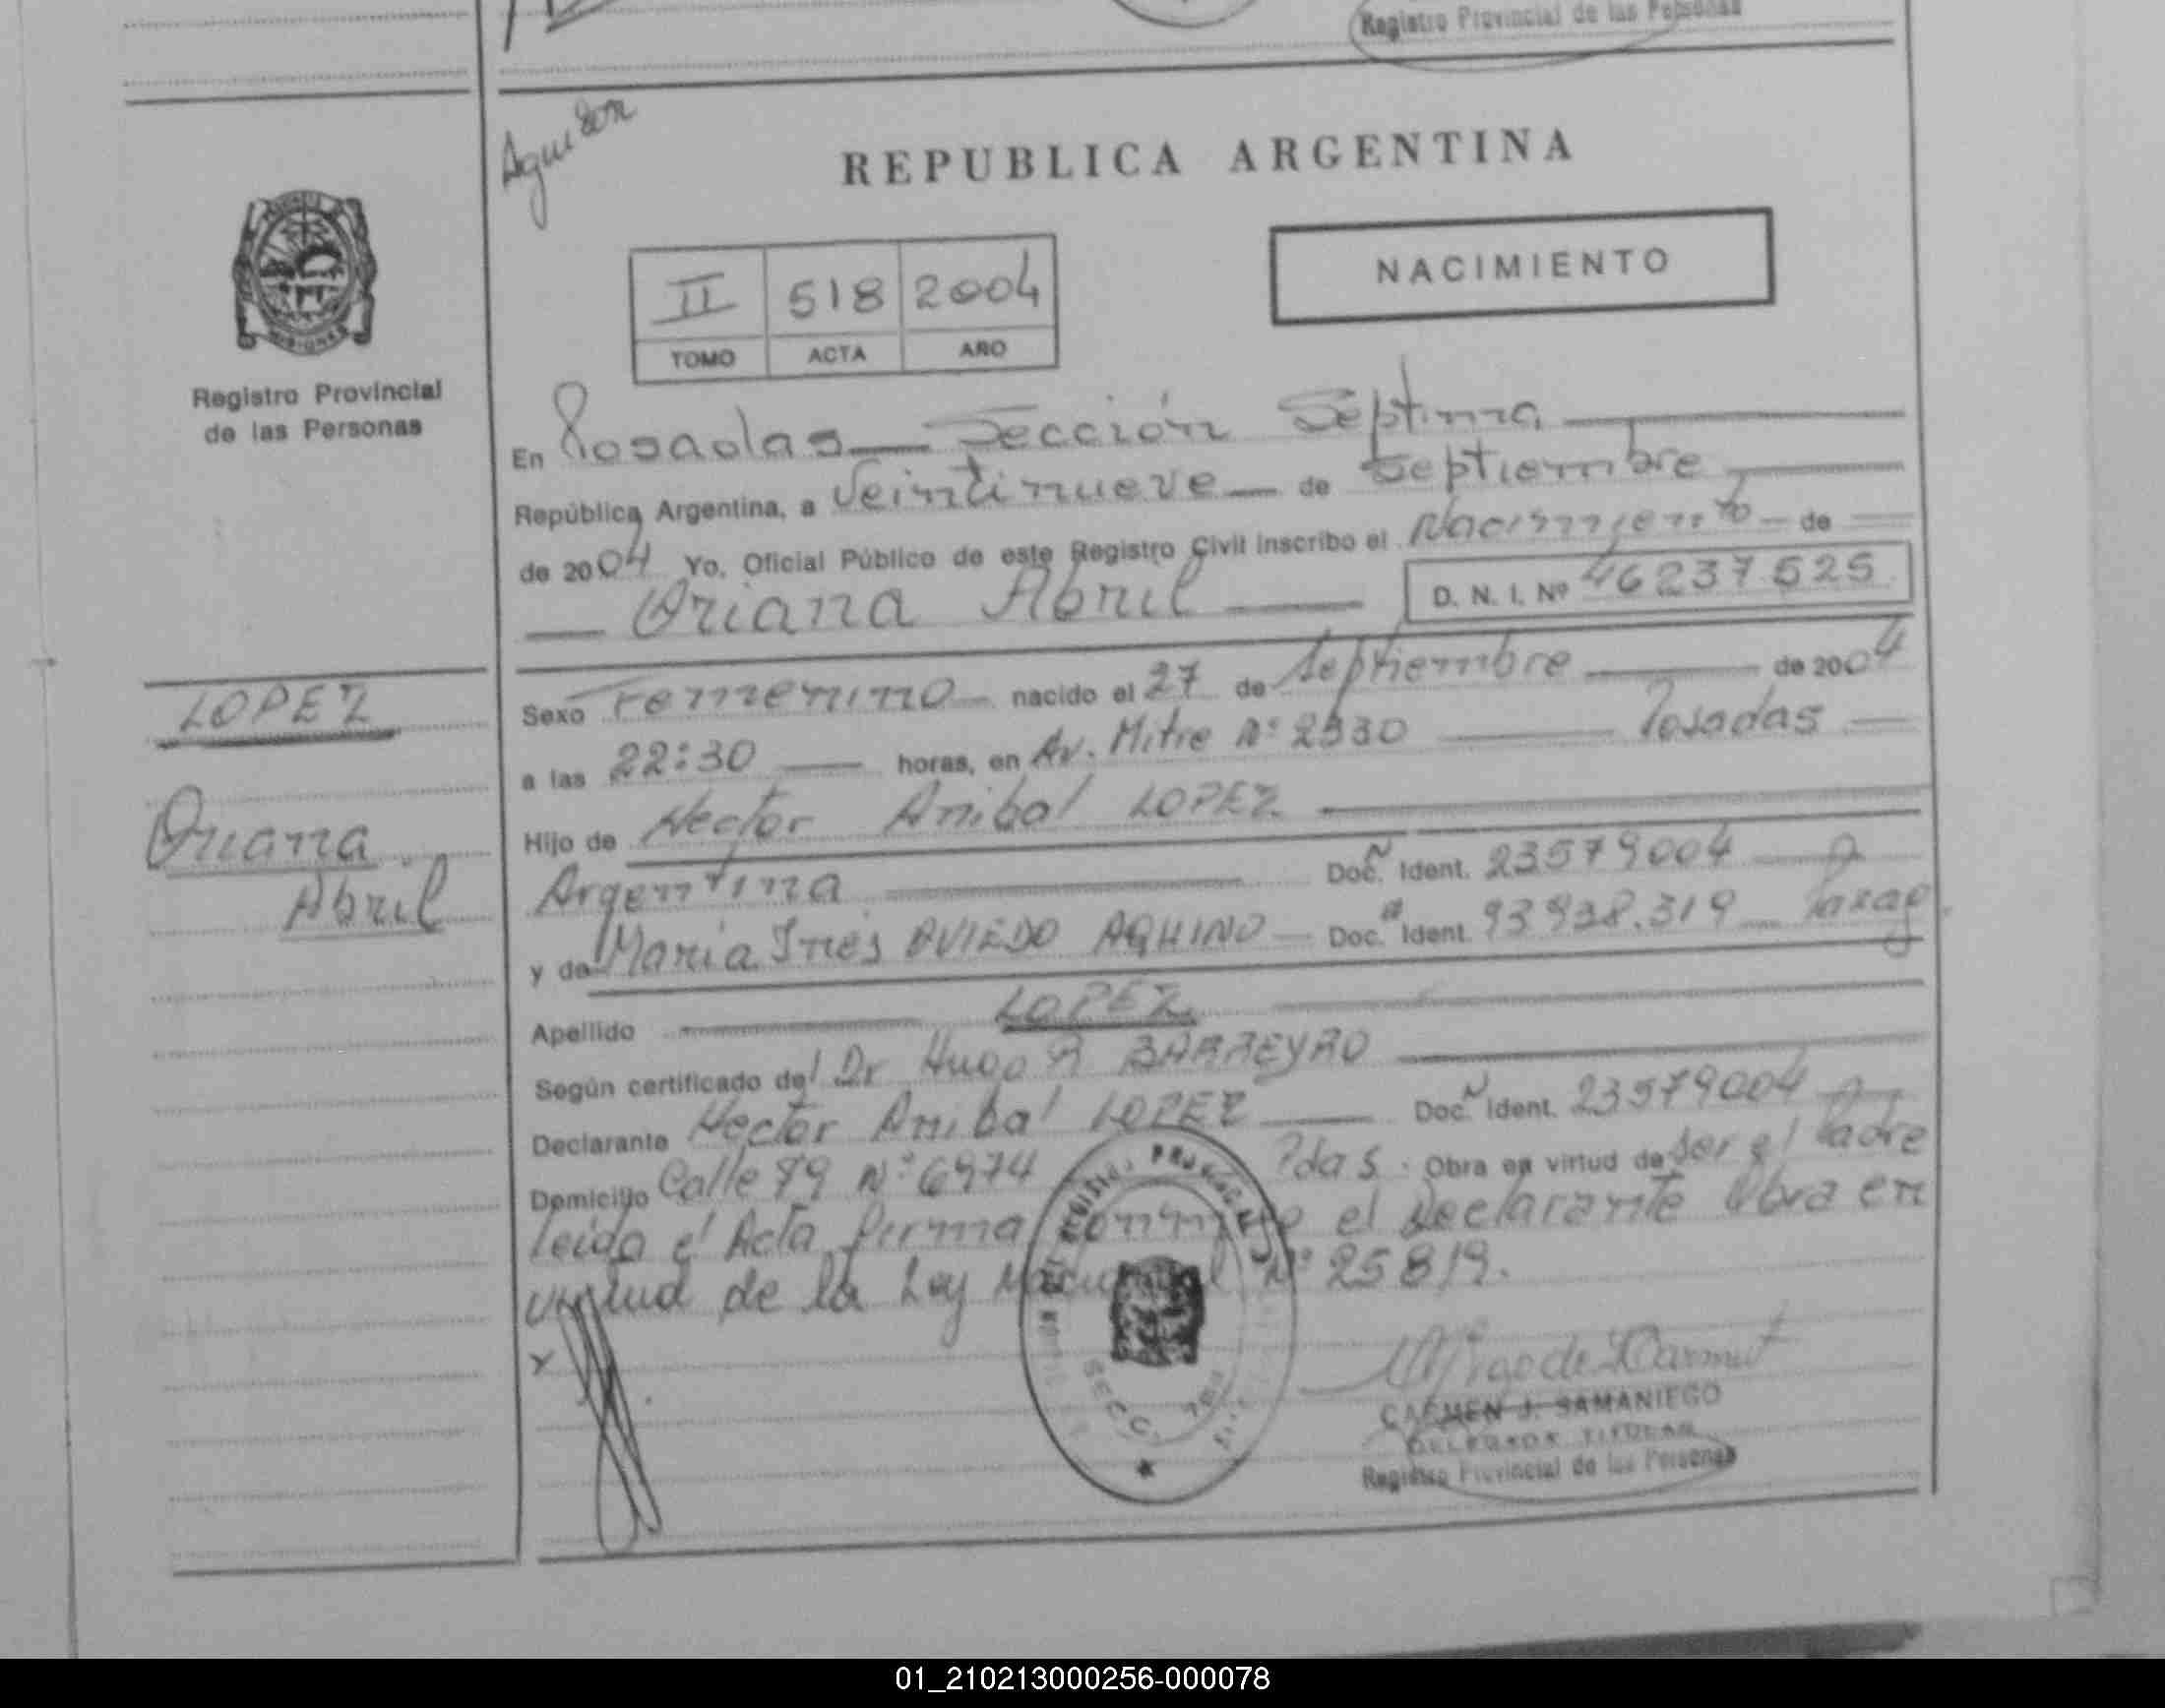 Registro Provincial de las Personas
REPUBLICA ARGENTINA
NACIMIENTO
II 518 2004
TOMO ACTA AÑO
MISIONES
Registro Provincial
de las Personas
En Posadas Sección Septima
República Argentina, a Veintinueve de Septiembre
de 2004 Yo, Oficial Público de este Registro Civil inscribo el Nacimiento de
Oriana Abril D. N. I. Nº 46237525
LOPEZ
Oriana
Abril
Sexo Femenino nacido el 27 de Septiembre de 2004
a las 22:30 horas, en Av. Mitre Nº 2330 Posadas
Hijo de Hector Anibal LOPEZ
Argentina Doc. Ident. 23579004
y de Maria Ines OVIEDO AQUINO Doc. Ident. 93938.319 Parag
Apellido LOPEZ
Según certificado del Dr Hugo R BARREYRO
Declarante Hector Anibal LOPEZ Doc. Ident. 23579004
Domicilio Calle 79 Nº 6974 Pdas. Obra en virtud de Ser el Padre
leida el Acta firma conmigo el Declarante Obra en
virtud de la Ley Nacional Nº 25819.
x
SECC. 7
CARMEN J. SAMANIEGO
DELEGADA TITULAR
Registro Provincial de las Personas
01_210213000256-000078